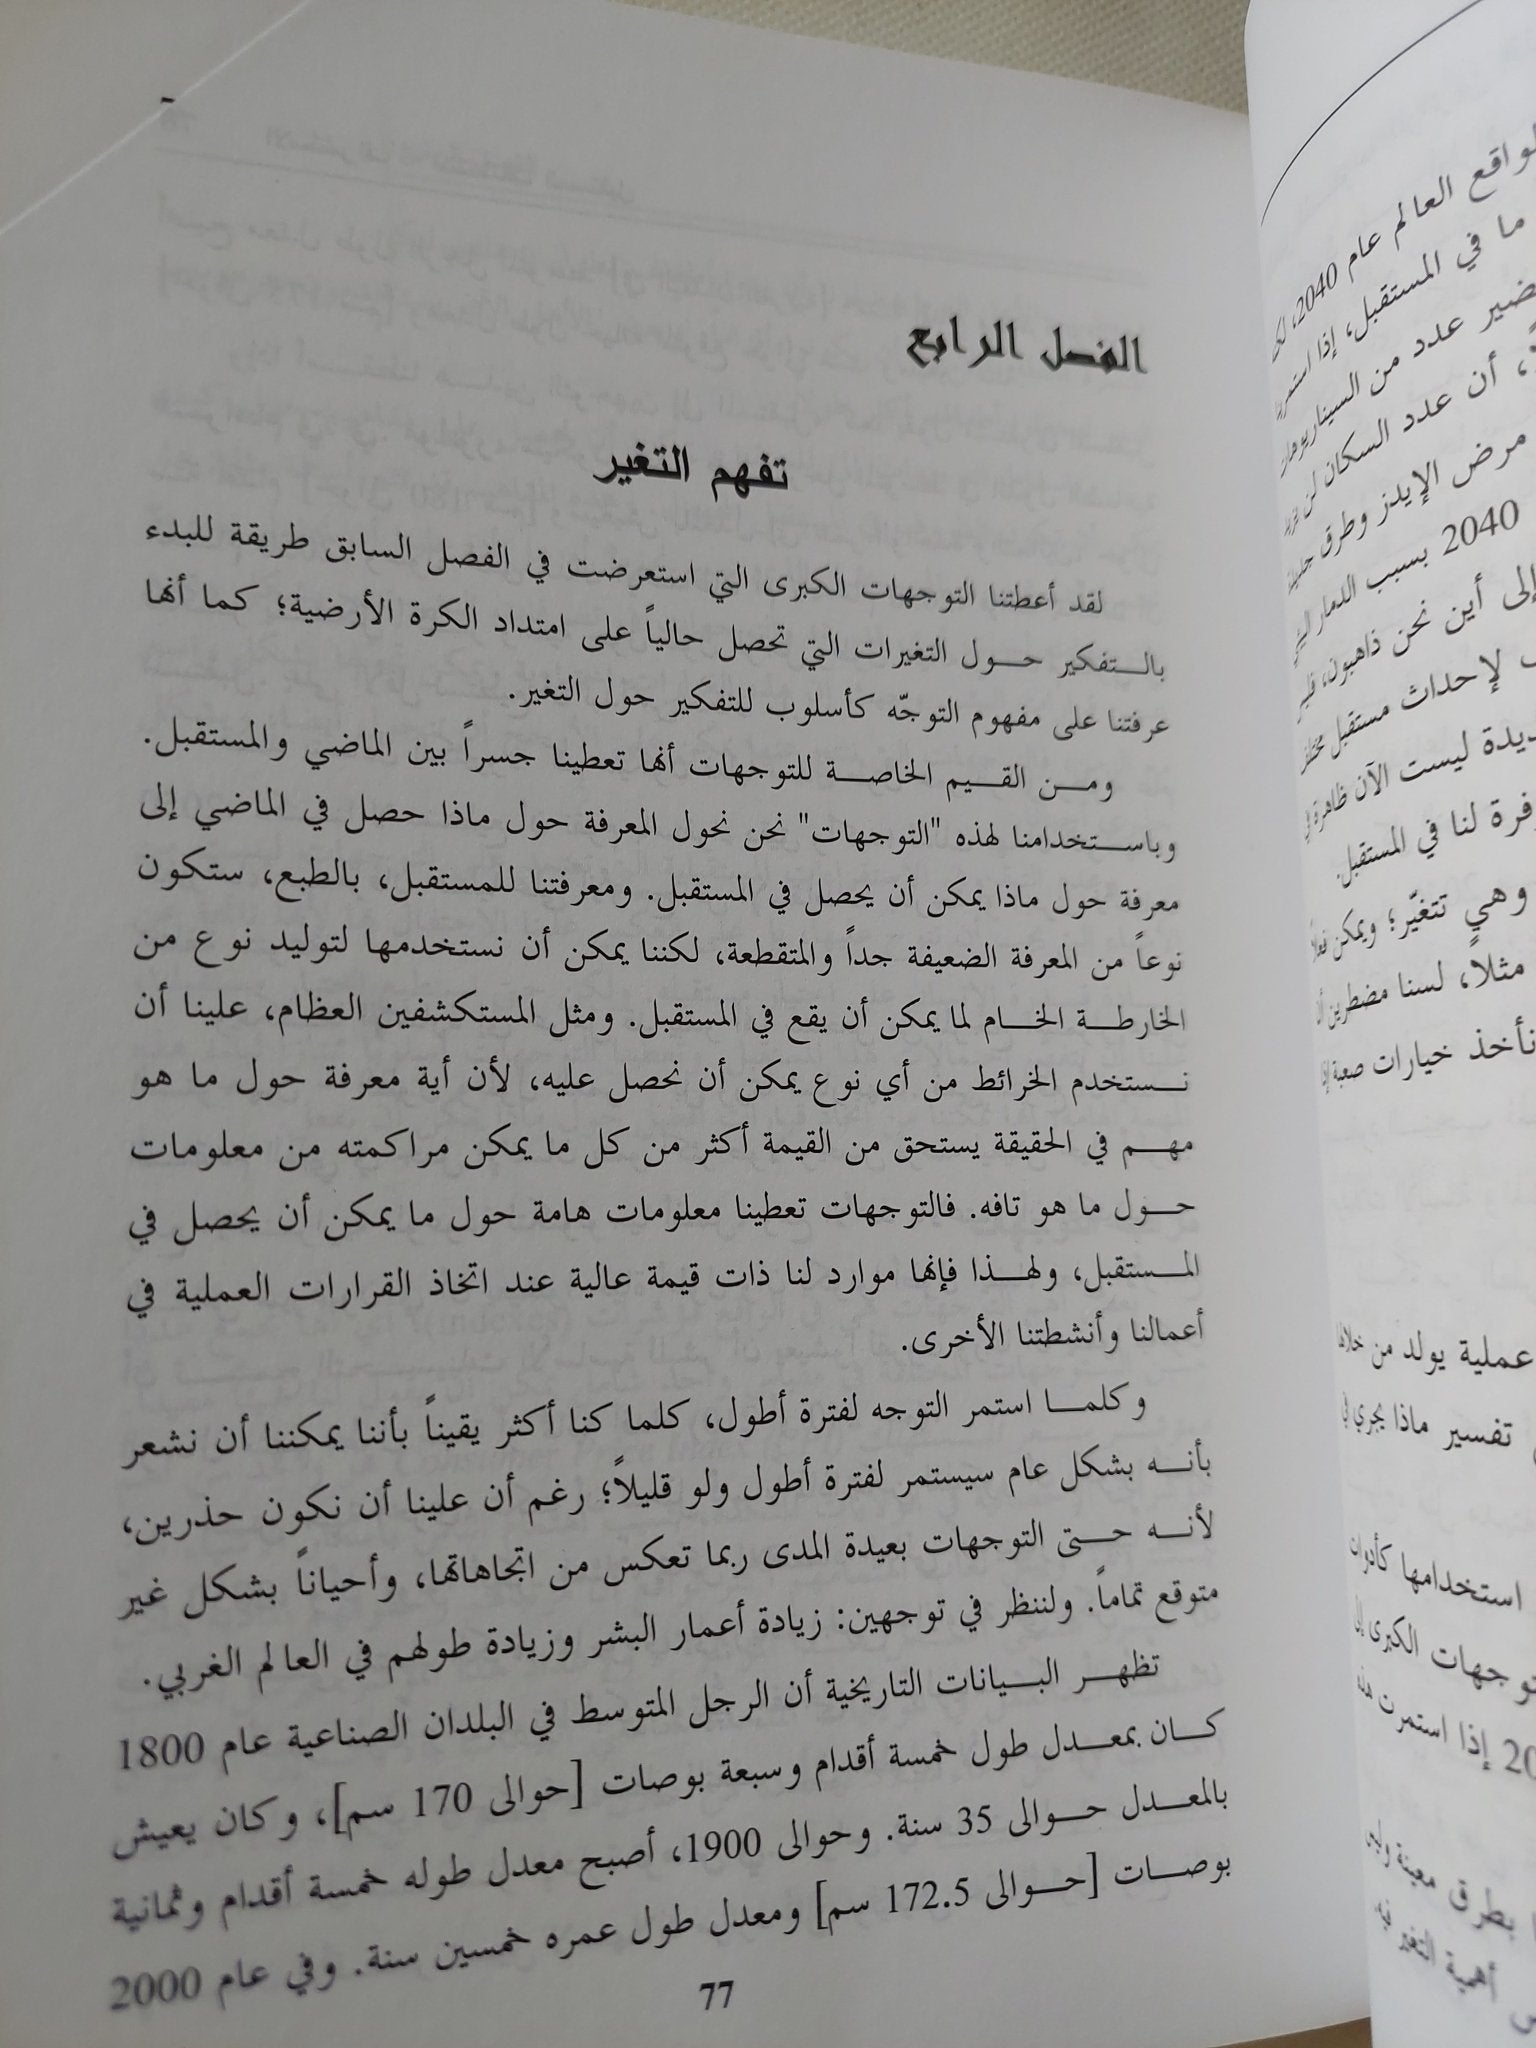 الفصل الرابع
تفهم التغير
لقد أعطتنا التوجهات الكبرى التي استعرضت في الفصل السابق طريقة للبدء
بالتفكير حول التغيرات التي تحصل حالياً على امتداد الكرة الأرضية؛ كما أنها
عرفتنا على مفهوم التوجّه كأسلوب للتفكير حول التغير.
ومن القيم الخاصة للتوجهات أنها تعطينا جسراً بين الماضي والمستقبل.
وباستخدامنا لهذه "التوجهات" نحن نحول المعرفة حول ماذا حصل في الماضي إلى
معرفة حول ماذا يمكن أن يحصل في المستقبل. ومعرفتنا للمستقبل، بالطبع، ستكون
نوعاً من المعرفة الضعيفة جداً والمتقطعة، لكننا يمكن أن نستخدمها لتوليد نوع من
الخارطة الخام لما يمكن أن يقع في المستقبل. ومثل المستكشفين العظام، علينا أن
نستخدم الخرائط من أي نوع يمكن أن نحصل عليه، لأن أية معرفة حول ما هو
مهم في الحقيقة يستحق من القيمة أكثر من كل ما يمكن مراكمته من معلومات
حول ما هو تافه. فالتوجهات تعطينا معلومات هامة حول ما يمكن أن يحصل في
المستقبل، ولهذا فإنها موارد لنا ذات قيمة عالية عند اتخاذ القرارات العملية في
أعمالنا وأنشطتنا الأخرى.
وكلما استمر التوجه لفترة أطول، كلما كنا أكثر يقيناً بأننا يمكننا أن نشعر
بأنه بشكل عام سيستمر لفترة أطول ولو قليلاً؛ رغم أن علينا أن نكون حذرين،
لأنه حتى التوجهات بعيدة المدى ربما تعكس من اتجاهاتها، وأحياناً بشكل غير
متوقع تماماً. ولننظر في توجهين: زيادة أعمار البشر وزيادة طولهم في العالم الغربي.
تظهر البيانات التاريخية أن الرجل المتوسط في البلدان الصناعية عام 1800
كان بمعدل طول خمسة أقدام وسبعة بوصات [حوالى 170 سم]، وكان يعيش
بالمعدل حوالى 35 سنة. وحوالى 1900، أصبح معدل طوله خمسة أقدام وثمانية
بوصات [حوالى 172.5 سم] ومعدل طول عمره خمسين سنة. وفي عام 2000
77
لواقع العالم عام 2040،
ما في المستقبل؛ إذا
عدد من السيناريوهات
أن عدد السكان لن
مرض الإيدز وطرق
2040 بسبب الدمار
إلى أين نحن ذاهبون،
لإحداث مستقبل
ليست الآن ظاهرة
لنا في المستقبل.
وهي تتغيّر؛ ويمكن
مثلاً، لسنا مضطرين
نأخذ خيارات صعبة
عملية يولد من خلالها
تفسير ماذا يجري في
استخدامها كأدوات
الكبرى
إذا استمرت
بطرق معينة
أهمية التغير